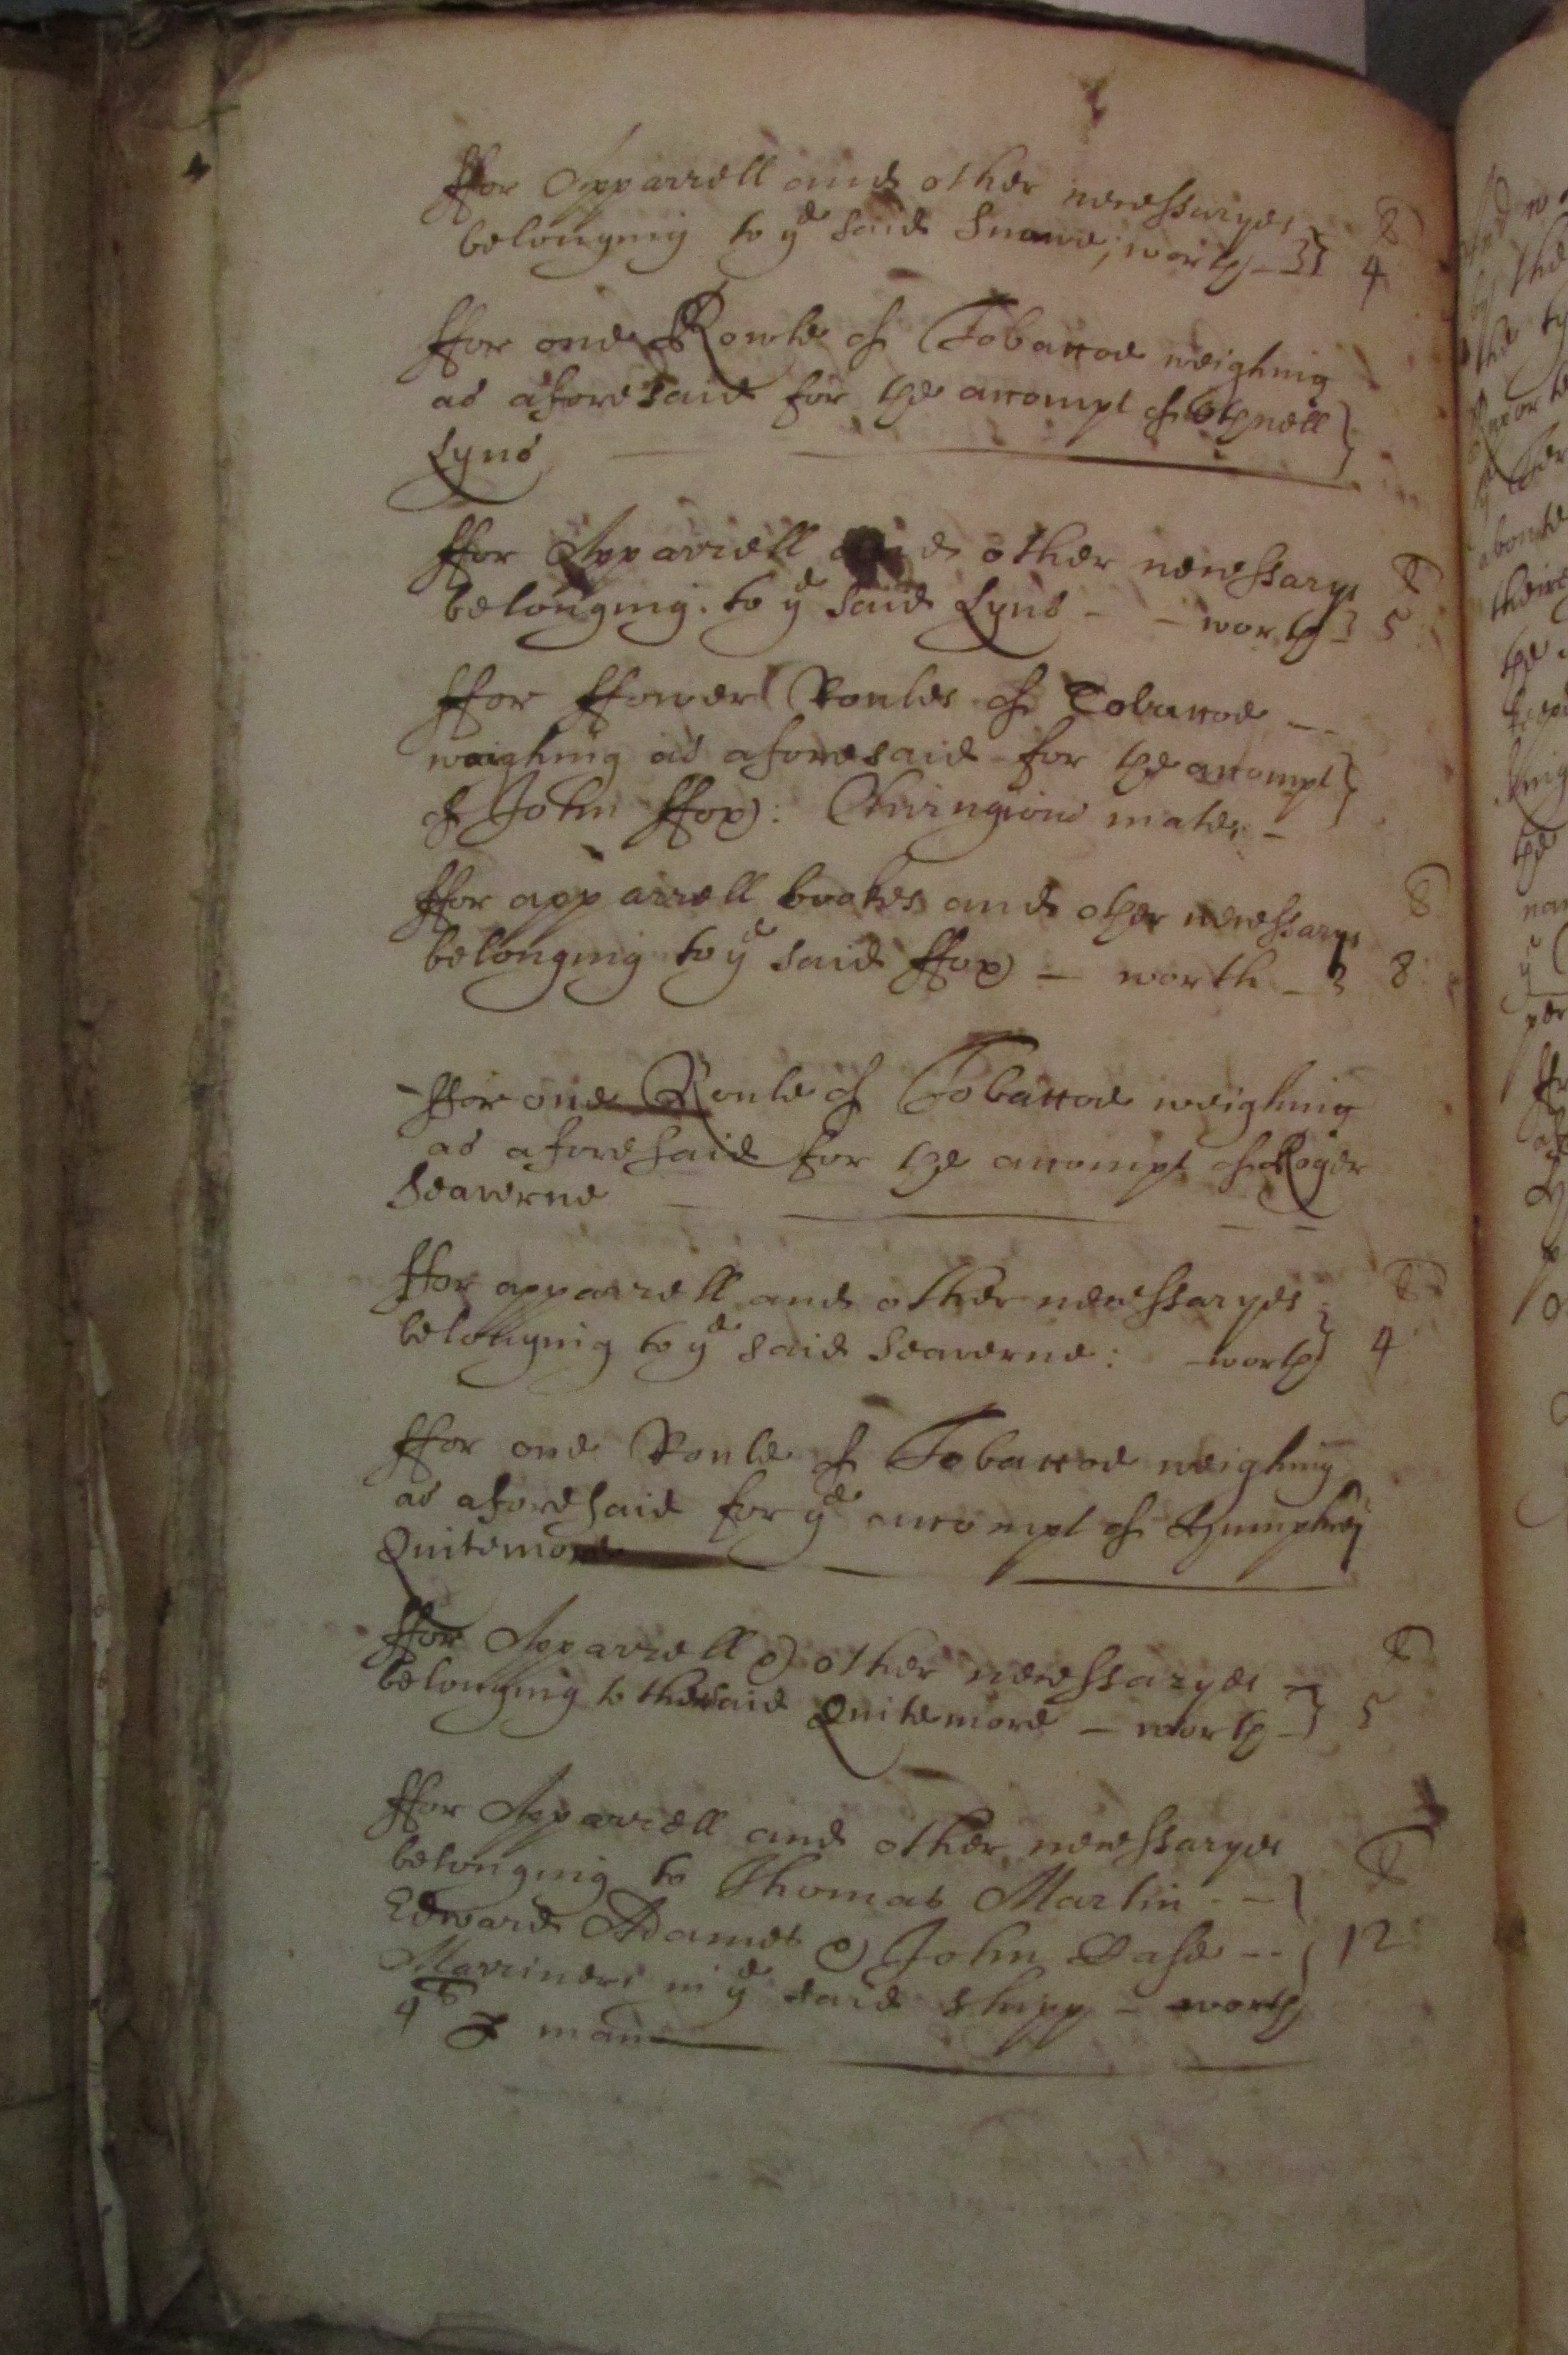 ffor Apparrell and other necessaryes
belonging to ye said Snowe, worth - li 4
ffor one Rowle of Tobaccoe weighing
as aforesaid for the accompt of
Lyns
ffor Apparrell and other necessaryes
belonging to ye said Lyns - - worth - li 5
ffor ffower Roules of Tobaccoe -
weighing as aforesaid for the accompt
of John ffox: Chirurgions mate -
ffor apparrell bookes and other necessarys
belonging to ye said ffox - worth - li 8
ffor one Roule of Tobaccoe weighing
as aforesaid for the accompt of Roger
Seaverne
ffor apparrell and other necessaryes
belonging to ye said Seaverne: worth li 4
ffor one Roule of Tobaccoe weighing
as aforesaid for ye accompt of Humphrey
Quitemore
ffor Apparrell & other necessaryes -
belonging to the said Quitemore - worth - li 5
ffor Apparrell and other necessaryes
belonging to Thomas Martin - -
Edward Adames & John Dase - - li 12
Marriners in ye said shipp - worth
4 li p man